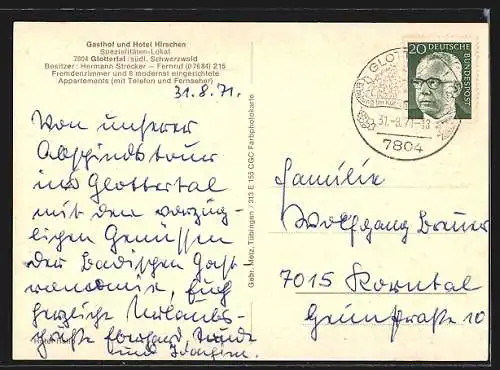 Gasthof und Hotel Hirschen
Spezialitäten-Lokal
7804 Glottertal /südl. Schwarzwald
Besitzer: Hermann Strecker — Fernruf (07684) 215
Fremdenzimmer und 8 modernst eingerichtete
Appartements (mit Telefon und Fernseher)
31.8.71.
Von unserer
Abschiedstour
ins Glottertal
mit den vorzüg-
lichen Genüssen
der Badischen Gast
ronomie, Euch
herzliche Urlaubs-
grüße Eberhard,
und
Gebr. Metz, Tübingen / 313 E 155 CGC Farbphotokarte
20 DEUTSCHE BUNDESPOST
GLOTT
31.-8.71-18
7804
Familie
Wolfgang Breuer
7015 Korntal
Grünstraße 10